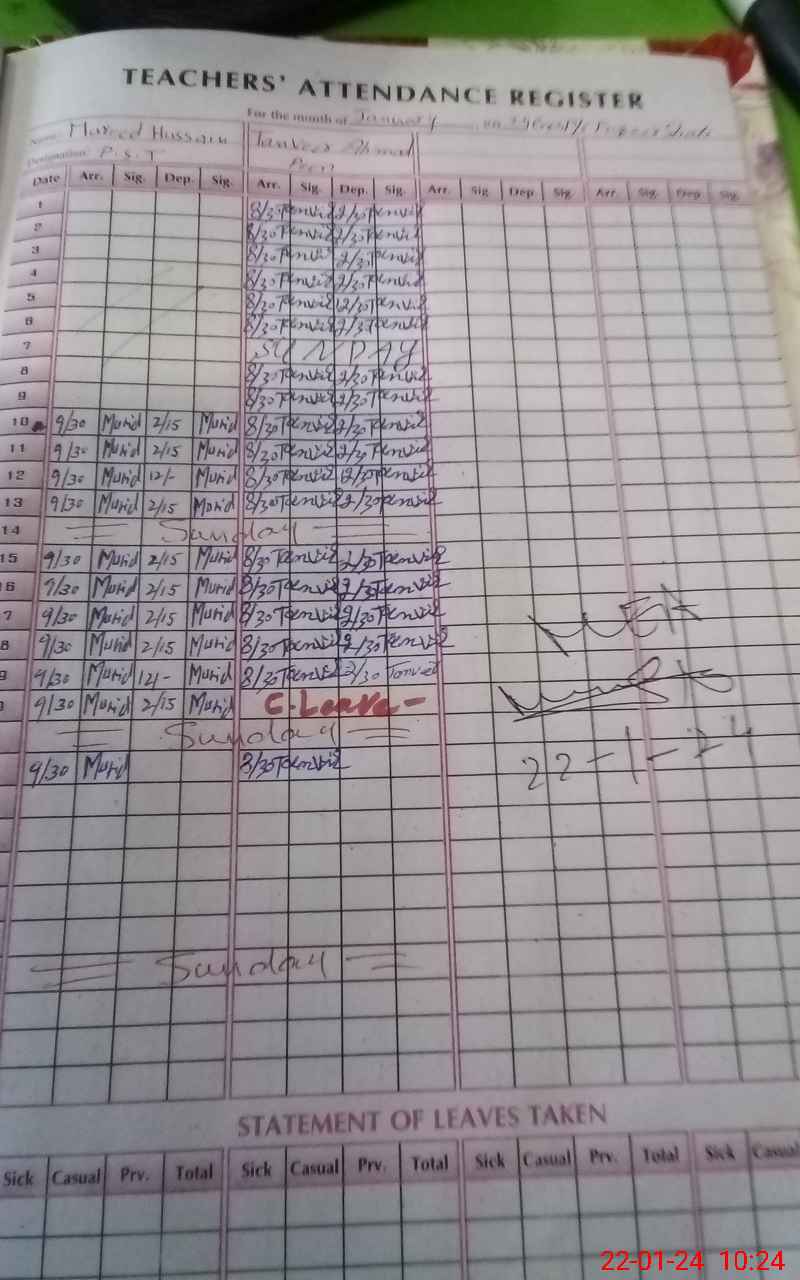 TEACHERS' ATTENDANCE REGISTER
For the month of January
Name: Mureed Hussain Tanveer Ahmad
Designation: P.S.T Peon
Date Arr. Sig. Dep. Sig. Arr. Sig. Dep. Sig. Arr. Sig. Dep. Sig. Arr. Sig. Dep. Sig.
1 8/30 Tanvir 2/30 Tanvir
2 8/30 Tanvir 2/30 Tanvir
3 8/30 Tanvir 2/30 Tanvir
4 8/30 Tanvir 2/30 Tanvir
5 8/30 Tanvir 12/30 Tanvir
6 8/30 Tanvir 2/30 Tanvir
7 SUNDAY
8 8/30 Tanvir 2/30 Tanvir
9 8/30 Tanvir 2/30 Tanvir
10 9/30 Murid 2/15 Murid 8/30 Tanvir 2/30 Tanvir
11 9/30 Murid 2/15 Murid 8/30 Tanvir 2/30 Tanvir
12 9/30 Murid 12/- Murid 8/30 Tanvir 12/30 Tanvir
13 9/30 Murid 2/15 Murid 8/30 Tanvir 2/30 Tanvir
14 Sunday
15 9/30 Murid 2/15 Murid 8/30 Tanvir 2/30 Tanvir
6 9/30 Murid 2/15 Murid 8/30 Tanvir 2/30 Tanvir
7 9/30 Murid 2/15 Murid 8/30 Tanvir 2/30 Tanvir
8 9/30 Murid 2/15 Murid 8/30 Tanvir 2/30 Tanvir
9 9/30 Murid 12/- Murid 8/30 Tanvir 2/30 Tanvir
9/30 Murid 2/15 Murid C. Leave -
Sunday
9/30 Murid 8/30 Tanvir
MEA
22-1-24
Sunday
STATEMENT OF LEAVES TAKEN
Sick Casual Prv. Total Sick Casual Prv. Total Sick Casual Prv. Total Sick Casual
22-01-24 10:24